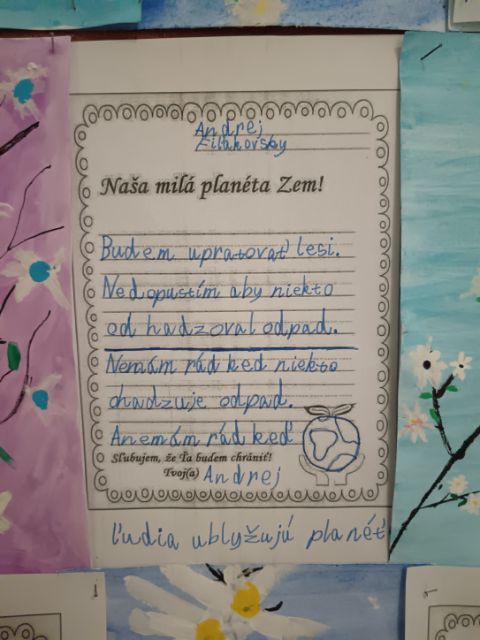 Andrej
Fiľakovsky
Naša milá planéta Zem!
Budem upratovať lesi.
Nedopustím aby niekto
od hadzoval odpad.
Nemám rád ked niekto
ohadzuje odpad.
Anemám rád keď
Sľubujem, že Ťa budem chrániť!
Tvoj(a) Andrej
ľudia ublyžujú planéť